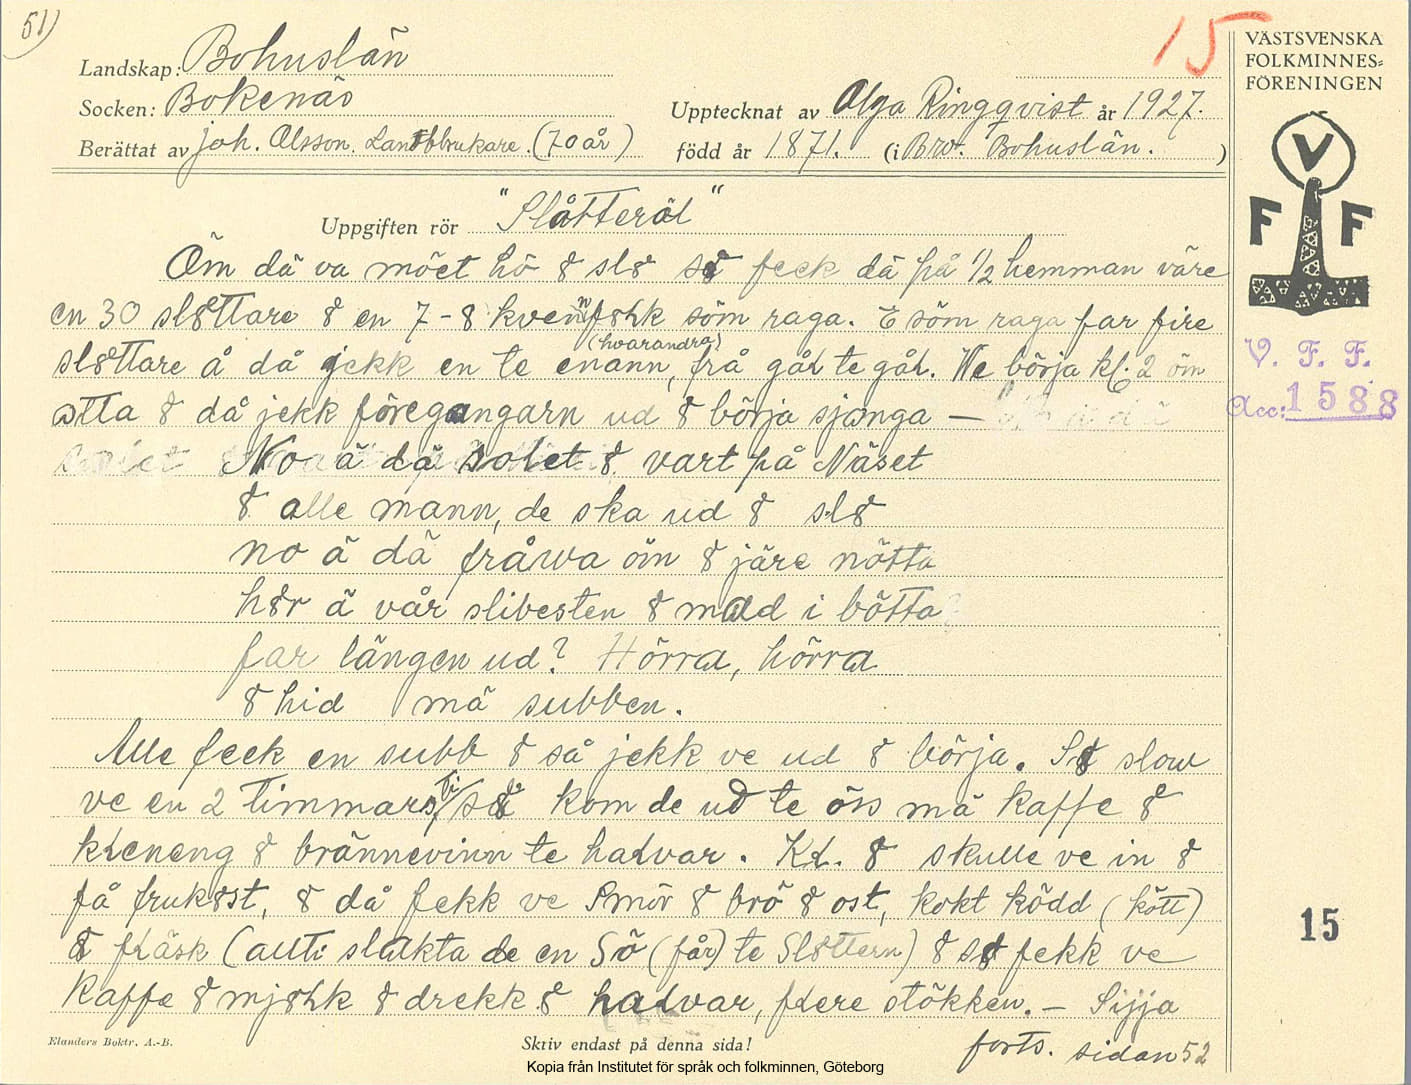 51)
15
Landskap: Bohuslän
Socken: Bokenäs
Upptecknat av Olga Ringqvist år 1927.
Berättat av Joh. Olsson. Lantbrukare. (70 år)
född år 1871. (i Bro. Bohuslän.)
VÄSTSVENSKA
FOLKMINNES=
FÖRENINGEN
V
F F
V. F. F.
Acc: 1588
Uppgiften rör "Slåtteröl"
Öm dä va möet hö 8 sl8 så feck dä på 1/2 hemman väre
en 30 sl8ttare 8 en 7-8 kvennf8hk söm raga. E söm raga far fire
sl8ttare å då jekk en te enann, (hvarandra) frå gål te gål. We börja kl. 2 öm
otta 8 då jekk föregangarn ud 8 börja sjonga —
No ä dä solet 8 vart på Näset
8 alle mann, de ska ud 8 sl8
no ä dä fråwa öm 8 järe nötta
h8r ä vår slibesten 8 mad i bötta
far längen ud? Hörra, hörra
8 hid mä subben.
Alle feck en subb 8 så jekk ve ud 8 börja. Så slow
ve en 2 timmars ti/ så kom de ud te öss mä kaffe 8
kleneng 8 brännevinn te halvar. Kl. 8 skulle ve in 8
få fruk8st, 8 då fekk ve Smör 8 brö 8 ost, kokt ködd (kött)
8 fläsk (allti slakta de en Sö (får) te Sl8ttern) 8 så fekk ve
kaffe 8 mj8hk 8 drekk 8 halvar, flere stökken. — Sijja
forts. sidan 52
15
Elanders Boktr. A.-B.
Skriv endast på denna sida!
Kopia från Institutet för språk och folkminnen, Göteborg